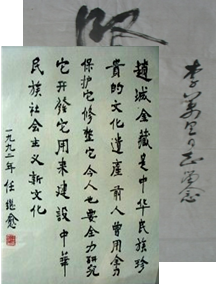 李萬里同志留念
趙城金藏是中华民族珍
贵的文化遗産前人曾用全力
保护它修整它今人也要全力研究
它开發它用来建設中華
民族社会主义新文化
一九九二年 任继愈